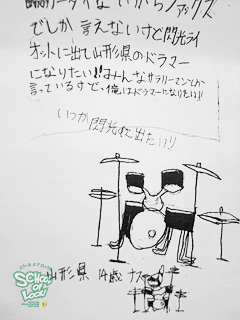 でしか言えないけど閃光ライ
オットに出て山形県のドラマー
になりたい!!みんなサラリーマンとか
言っているけど、俺はドラマーになりたい!!
いつか閃光に出たい!!
SCHOOL OF LOCK!
山形県 14歳 ナス